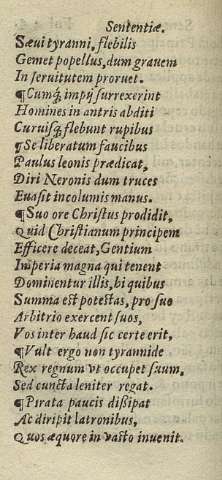 Sententiæ.
Sæui tyranni, flebilis
Gemet popellus, dum grauem
In seruitutem proruet.
¶Cumq́; impij surrexerint
Homines in antris abditi
Curuisq́; flebunt rupibus
¶Se liberatum faucibus
Paulus leonis prædicat,
Diri Neronis dum truces
Euasit incolumis manus.
¶Suo ore Christus prodidit,
Quid Christianum principem
Efficere deceat, Gentium
Imperia magna qui tenent
Dominentur illis, hi quibus
Summa est potestas, pro suo
Arbitrio exercent suos,
Vos inter haud sic certe erit,
¶Vult ergo non tyrannide
Rex regnum vt occupet suum,
Sed cuncta leniter regat.
¶Pirata paucis dißipat
Ac diripit latronibus,
Quos æquore in vasto inuenit.